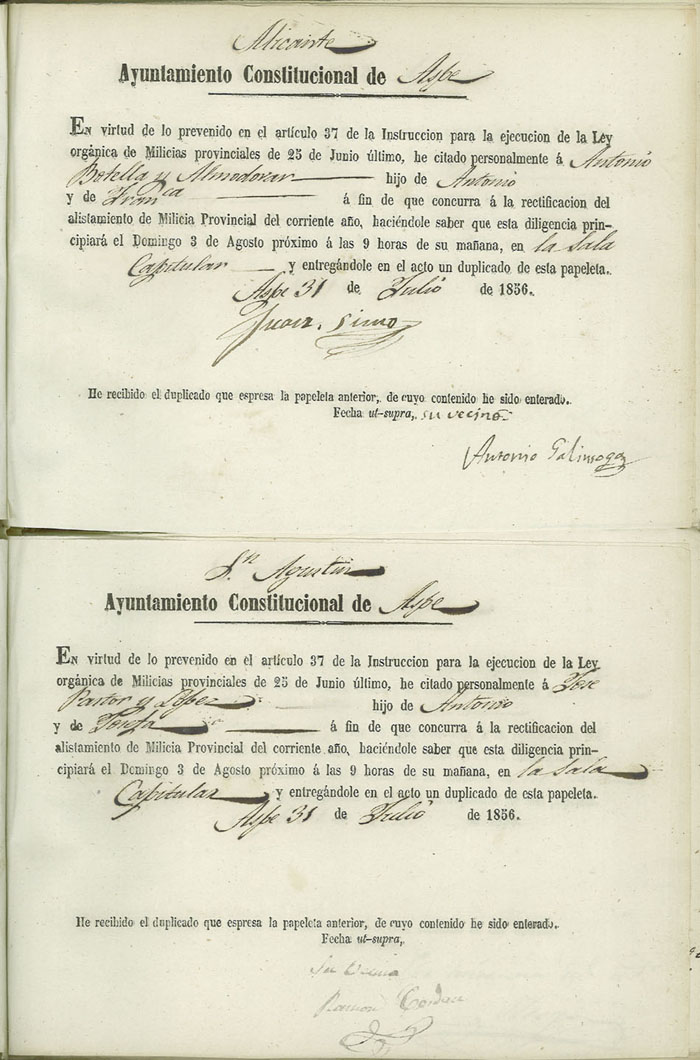 Alicante
Ayuntamiento Constitucional de Aspe
En virtud de lo prevenido en el artículo 37 de la Instruccion para la ejecucion de la Ley
orgánica de Milicias provinciales de 25 de Junio último, he citado personalmente á Antonio
Botella y Almodovar hijo de Antonio
y de Fran.ca á fin de que concurra á la rectificacion del
alistamiento de Milicia Provincial del corriente año, haciéndole saber que esta diligencia prin-
cipiará el Domingo 3 de Agosto próximo á las 9 horas de su mañana, en la Sala
Capitular y entregándole en el acto un duplicado de esta papeleta.
Aspe 31 de Julio de 1856.
Juan Simo
He recibido el duplicado que espresa la papeleta anterior, de cuyo contenido he sido enterado.
Fecha ut-supra, su vecino
Antonio Galinsoga
Sn. Agustin
Ayuntamiento Constitucional de Aspe
En virtud de lo prevenido en el artículo 37 de la Instruccion para la ejecucion de la Ley
orgánica de Milicias provinciales de 25 de Junio último, he citado personalmente á Jose
Pastor y Lopez hijo de Antonio
y de Teresa á fin de que concurra á la rectificacion del
alistamiento de Milicia Provincial del corriente año, haciéndole saber que esta diligencia prin-
cipiará el Domingo 3 de Agosto próximo á las 9 horas de su mañana, en la Sala
Capitular y entregándole en el acto un duplicado de esta papeleta.
Aspe 31 de Julio de 1856.
He recibido el duplicado que espresa la papeleta anterior, de cuyo contenido he sido enterado.
Fecha ut-supra,
Su
Ramon